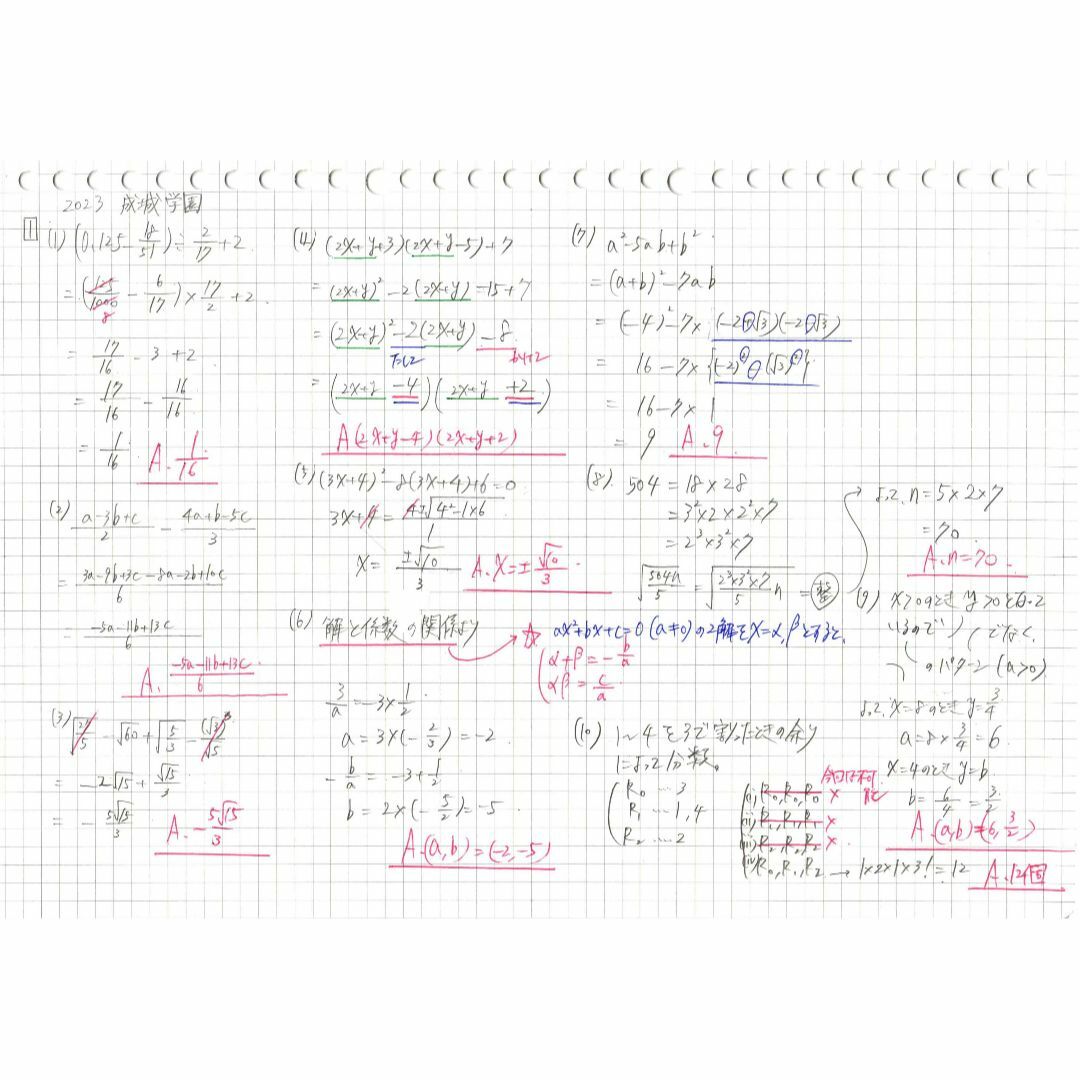 2023 成城学園
1
(1) (0.125 - 18/51) ÷ 2/17 + 2
= (125/1000 - 6/17) × 17/2 + 2
8
= 17/16 - 3 + 2
= 17/16 - 16/16
= 1/16
A. 1/16
(2) (a-3b+c)/2 - (4a+b-5c)/3
= (3a-9b+3c-8a-2b+10c)/6
= (-5a-11b+13c)/6
A. (-5a-11b+13c)/6
= -2√15 + √15/3
= - 5√15/3
A. - 5√15/3
(4) (2x+y+3)(2x+y-5)+7
= (2x+y)²-2(2x+y)-15+7
= (2x+y)²-2(2x+y)-8
= (2x+y-4)(2x+y+2)
A (2x+y-4)(2x+y+2)
(5) (3x+4)²-8(3x+4)+6=0
3x+4 = (4±√(4²-1×6))/1
x = ±√10/3
A. x=±√10/3
(6) 解と係数の関係より
☆ ax²+bx+c=0 (a≠0)の2解をx=α,βとすると、
α+β = -b/a
αβ = c/a
3/a = -3×1/2
a = 3×(-2/3) = -2
-b/a = -3+1/2
b = 2×(-5/2) = -5
A.(a,b)=(-2,-5)
(7) a²-5ab+b²
= (a+b)²-7ab
= (-4)²-7×(-2+√3)(-2-√3)
= 16-7×{(-2)²-(√3)²}
= 16-7×1
= 9
A. 9
(8) 504 = 18×28
= 3²×2×2²×7
= 2³×3²×7
√(504n/5) = √(2³×3²×7/5 n) = 整
よって、n=5×2×7
= 70
A. n=70
(9) x>0のときy>0となって
いるので
でなく、
のパターン (a>0)
よって、x=8のときy=3/4
a = 8×3/4 = 6
x=4のときy=b
b = 6/4 = 3/2
A.(a,b)=(6, 3/2)
(10) 1〜4を3で割ったときの余り
によって分類。
R₀ … 3
R₁ … 1,4
R₂ … 2
(i) R₀,R₀,R₀ ×
(ii) R₁,R₁,R₁ ×
(iii) R₂,R₂,R₂ ×
(iv) R₀,R₁,R₂ → 1×2×1×3! = 12
A. 12個